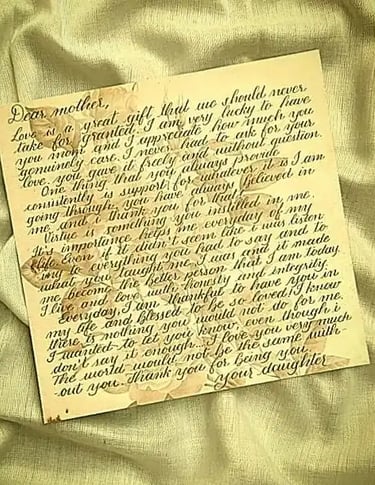 Dear mother,
Love is a great gift that we should never
take for granted. I am very lucky to have
you mom and I appreciate how much you
genuinely care. I never had to ask for your
love, you gave it freely and without question.
One thing that you always provide
consistently is support for whatever it is I am
going through. You have always believed in
me and I thank you for that.
Virtue is something you instilled in me.
It's importance helps me everyday of my
life. Even if it didn't seem like it was listen
to everything you had to say and to
what you taught me. I was and it made
me become the better person that I am today.
I live and love with honesty and integrity
everyday. I am thankful to have you in
my life and blessed to be so loved. I know
there is nothing you would not do for me.
I wanted to let you know, even though i
don't say it enough. I love you very much
The world would not be the same with-
out you. Thank you for being you.
your daughter